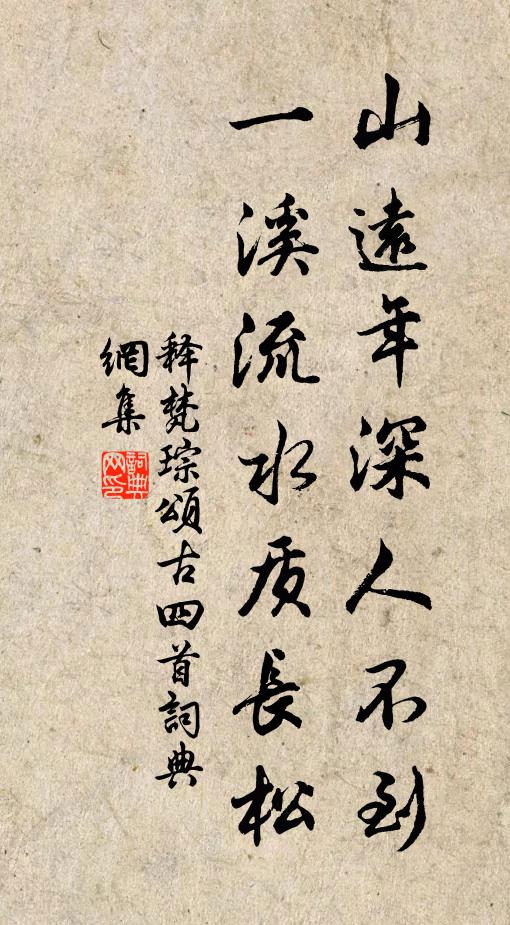 山遠年深人不到
一溪流水质長松
释梵琮頌古四首詞典
網集
詞典
网印